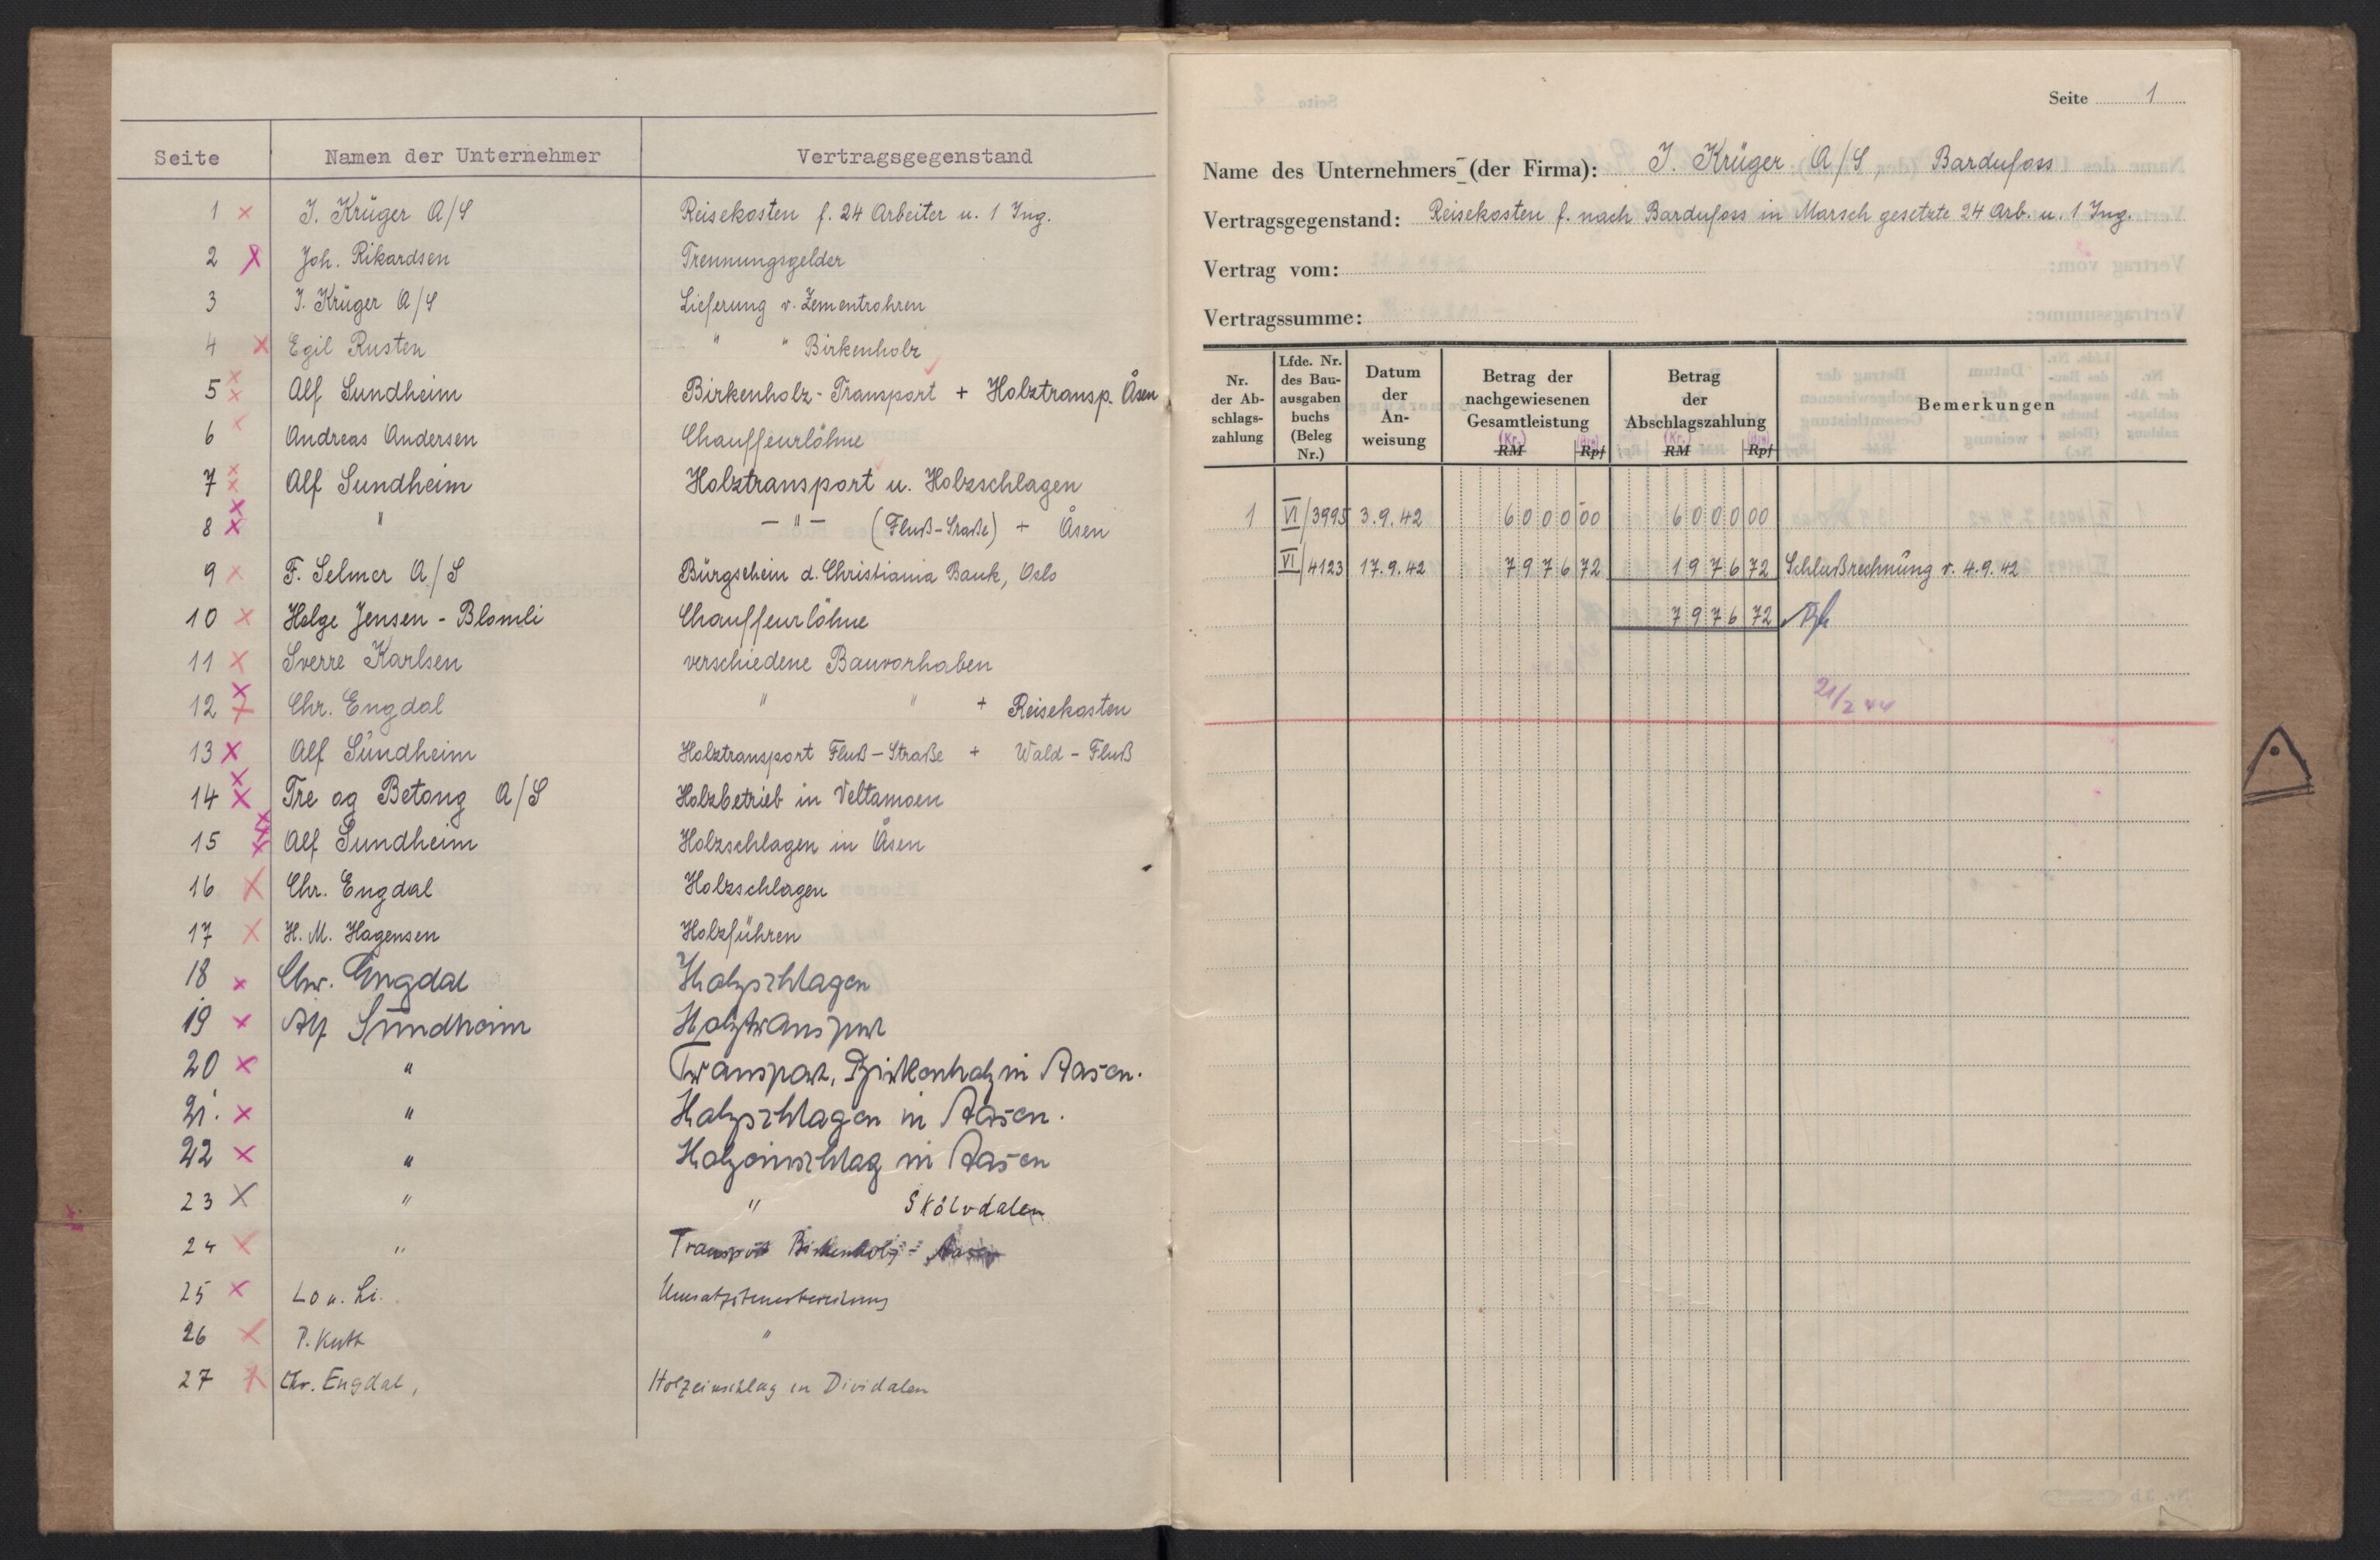 Seite Namen der Unternehmer Vertragsgegenstand
1 × J. Krüger A/S Reisekosten f. 24 Arbeiter u. 1 Ing.
2 × Joh. Rikardsen Trennungsgelder
3 J. Krüger A/S Lieferung v. Zementrohren
4 × Egil Rusten " " Birkenholz
5 × × Alf Sundheim Birkenholz-Transport + Holztransp. Åsen
6 Andreas Andersen Chauffeurlöhne
7 × × Alf Sundheim Holztransport u. Holzschlagen
8 × × " - " - (Fluß-Straße) + Åsen
9 × F. Selmer A/S Bürgschein d. Christiania Bank, Oslo
10 × Helge Jensen - Blomli Chauffeurlöhne
11 × Sverre Karlsen verschiedene Bauvorhaben
12 × × Chr. Engdal " " + Reisekosten
13 × Alf Sundheim Holztransport Fluß-Straße + Wald-Fluß
14 × × Tre og Betong A/S Holzbetrieb in Veltamoen
15 × × × Alf Sundheim Holzschlagen in Åsen
16 × Chr. Engdal Holzschlagen
17 × H. M. Hagensen Holzführen
18 × Chr. Engdal Holzschlagen
19 × Alf Sundheim Holztransport
20 × " Transport, Birkenholz in Aasen.
21. × " Holzschlagen in Aasen.
22 × " Holzeinschlag in Aasen
23 × " " Skölvdalen
24 × " Transport Birkenholz - Aasen
25 × Lo u. Li.
26 × P. Kuth "
27 × Chr. Engdal, Holzeinschlag in Dividalen
Seite 1
Name des Unternehmers (der Firma): J. Krüger A/S, Bardufoss
Vertragsgegenstand: Reisekosten f. nach Bardufoss in Marsch gesetzte 24 Arb. u. 1 Ing.
Vertrag vom:
Vertragssumme:
Nr. der Ab-schlags-zahlung
Lfde. Nr. des Bau-ausgaben buchs (Beleg Nr.)
Datum der An-weisung
Betrag der nachgewiesenen Gesamtleistung
(Kr.) (Öre)
RM Rpf
Betrag der Abschlagszahlung
(Kr.) (Öre)
RM Rpf
Bemerkungen
1 VI/3995 3.9.42 6000 00 6000 00
VI/4123 17.9.42 7976 72 1976 72 Schlußrechnung v. 4.9.42
7976 72
21/2 44